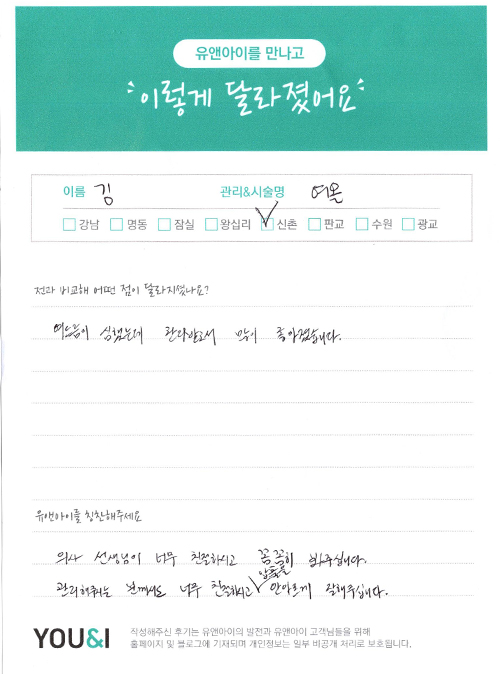 유앤아이를 만나고
이렇게 달라졌어요
이름 김 관리&시술명 여올
강남 명동 잠실 왕십리 신촌 판교 수원 광교
전과 비교해 어떤 점이 달라지셨나요?
여드름이 심했는데 관리받고서 많이 좋아졌습니다.
유앤아이를 칭찬해주세요
의사 선생님이 너무 친절하시고 꼼꼼히 봐주십니다.
압출을
관리해주는 분께서도 너무 친절하시고 안아프게 잘해주십니다.
YOU&I
작성해주신 후기는 유앤아이의 발전과 유앤아이 고객님들을 위해
홈페이지 및 블로그에 기재되며 개인정보는 일부 비공개 처리로 보호됩니다.